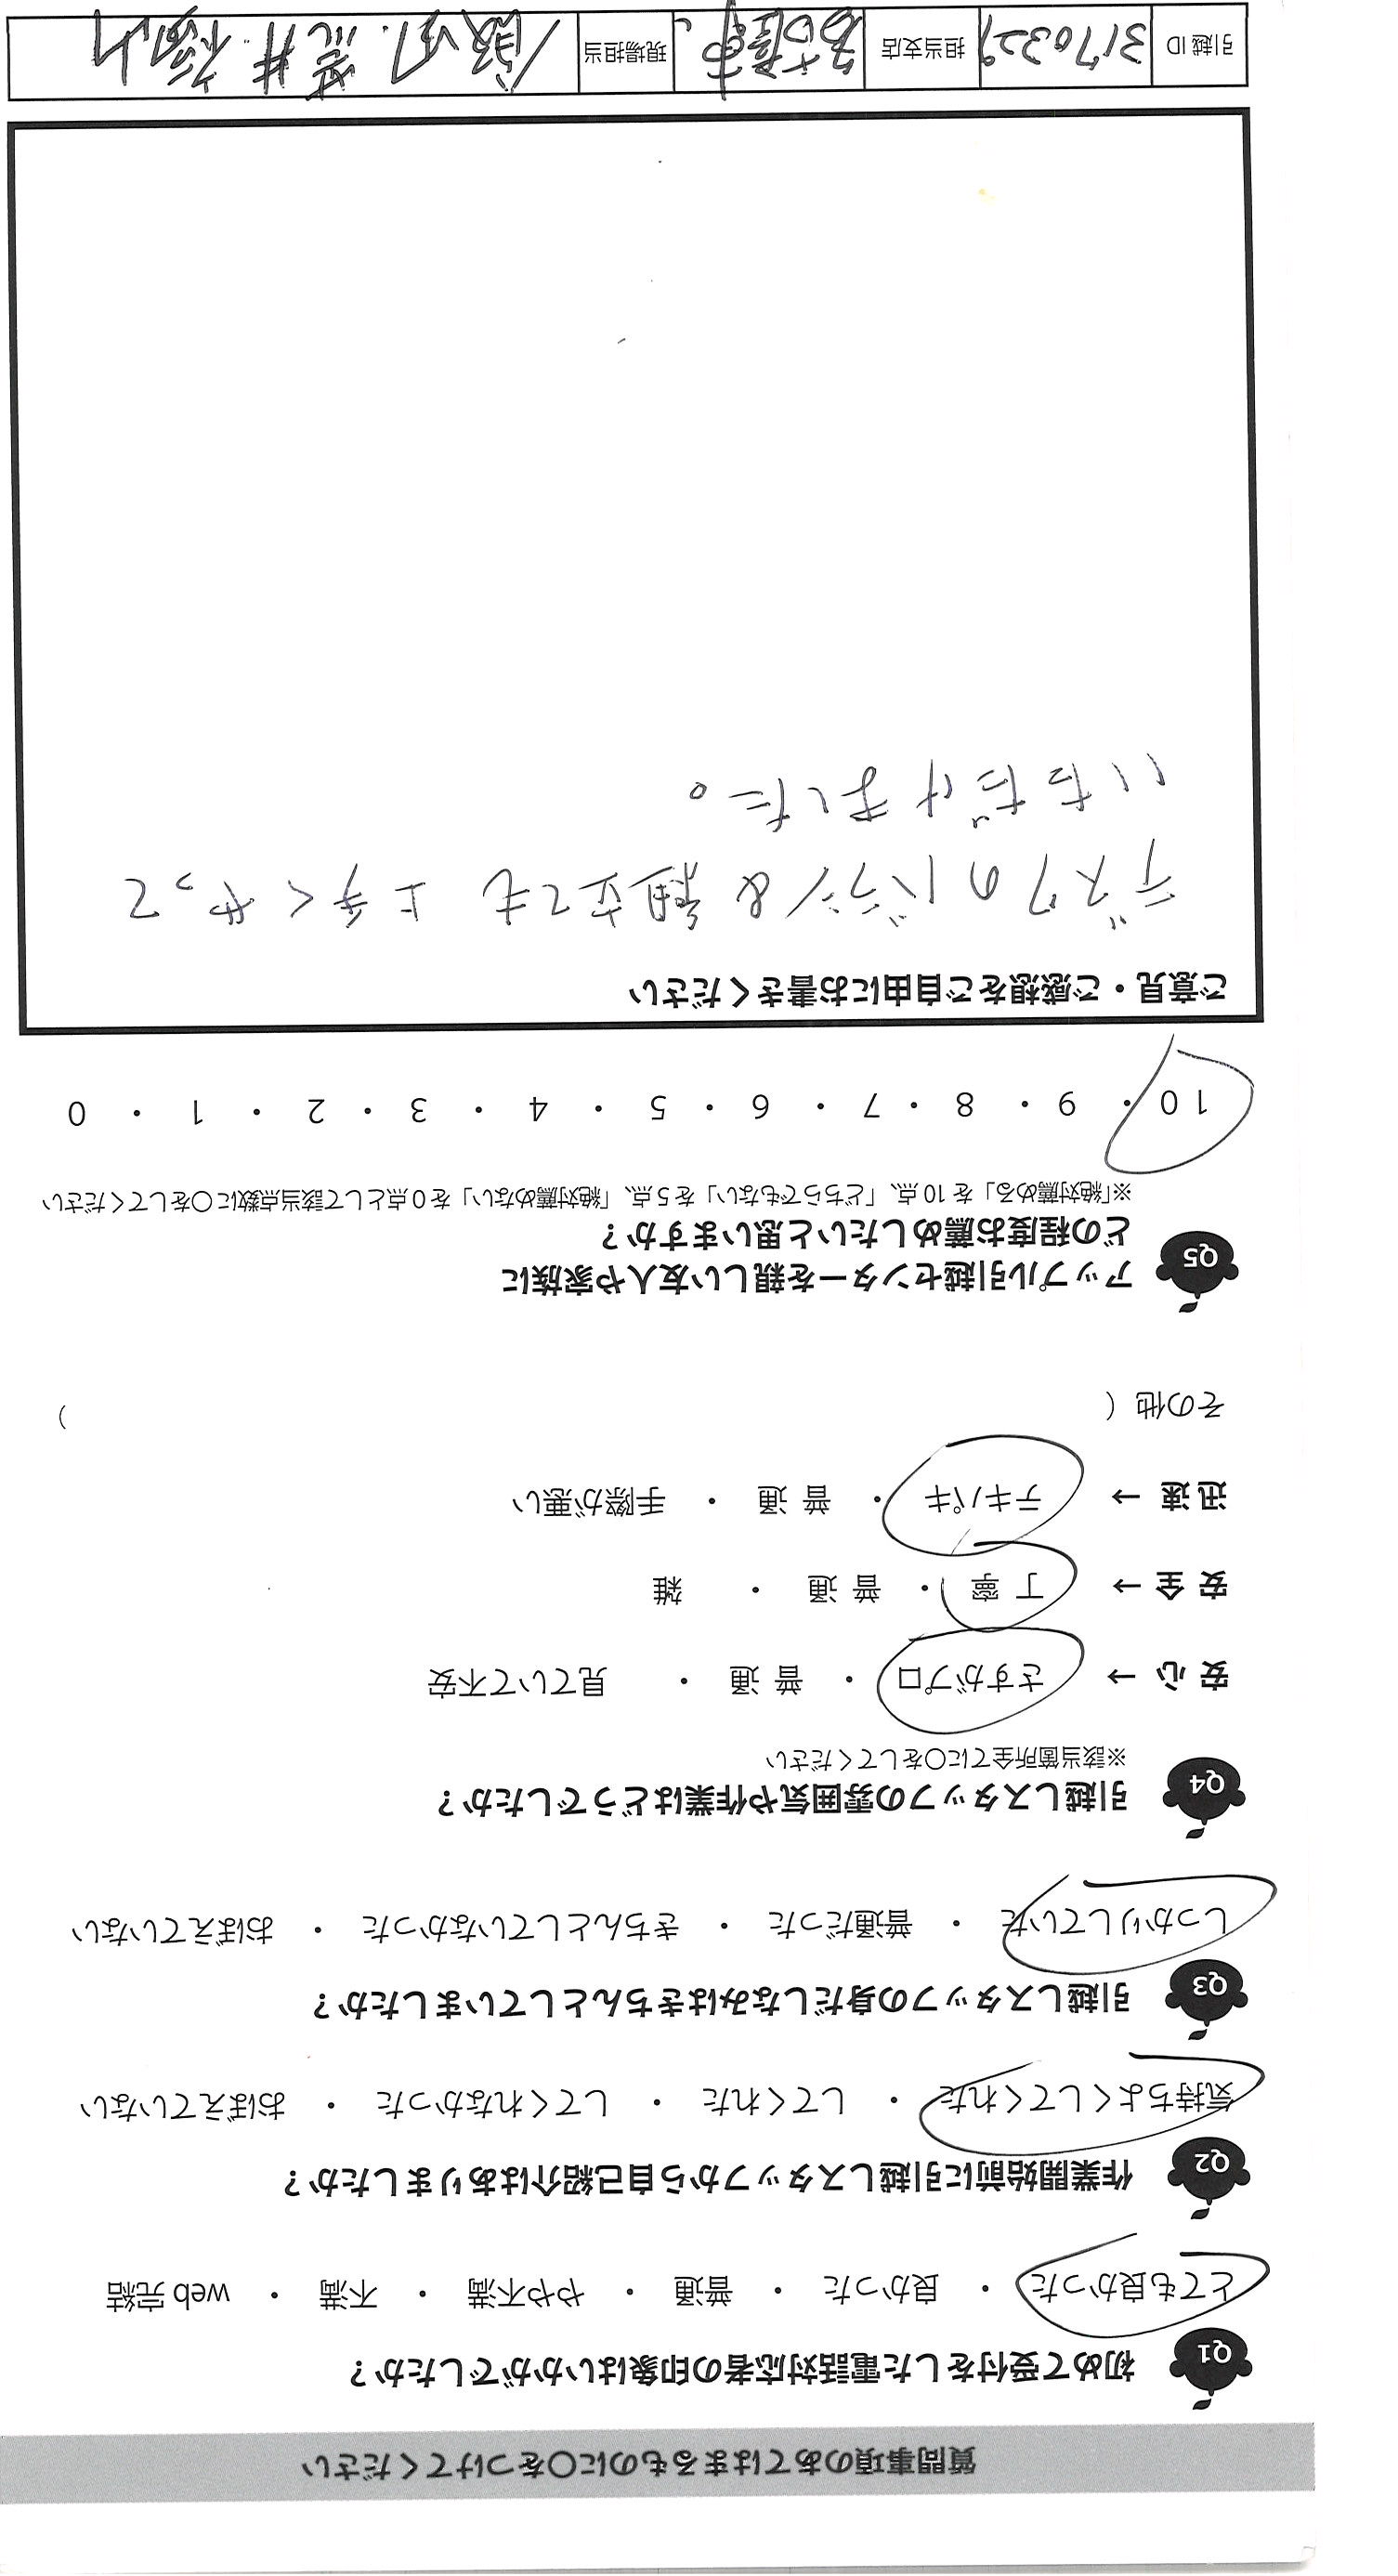 質問事項のあてはまるものに○をつけてください
Q1 初めて受付をした電話対応者の印象はいかがでしたか?
とても良かった ・ 良かった ・ 普通 ・ やや不満 ・ 不満 ・ web 完結
Q2 作業開始前に引越しスタッフから自己紹介はありましたか?
気持ちよくしてくれた ・ してくれた ・ してくれなかった ・ おぼえていない
Q3 引越しスタッフの身だしなみはきちんとしていましたか?
しっかりしていた ・ 普通だった ・ きちんとしていなかった ・ おぼえていない
Q4 引越しスタッフの雰囲気や作業はどうでしたか?
※該当箇所全てに○をしてください
安心 → さすがプロ ・ 普通 ・ 見ていて不安
安全 → 丁寧 ・ 普通 ・ 雑
迅速 → テキパキ ・ 普通 ・ 手際が悪い
その他 ( )
Q5 アップル引越センターを親しい友人や家族に
どの程度お薦めしたいと思いますか?
※「絶対薦める」を 10 点、「どちらでもない」を 5 点、「絶対薦めない」を 0 点として該当点数に○をしてください
10 ・ 9 ・ 8 ・ 7 ・ 6 ・ 5 ・ 4 ・ 3 ・ 2 ・ 1 ・ 0
ご意見・ご感想をご自由にお書きください
デスクのバラシ&組立ても上手くやって
いただけました。
引越 ID 3170329 担当支店 名古屋市 現場担当 荒井